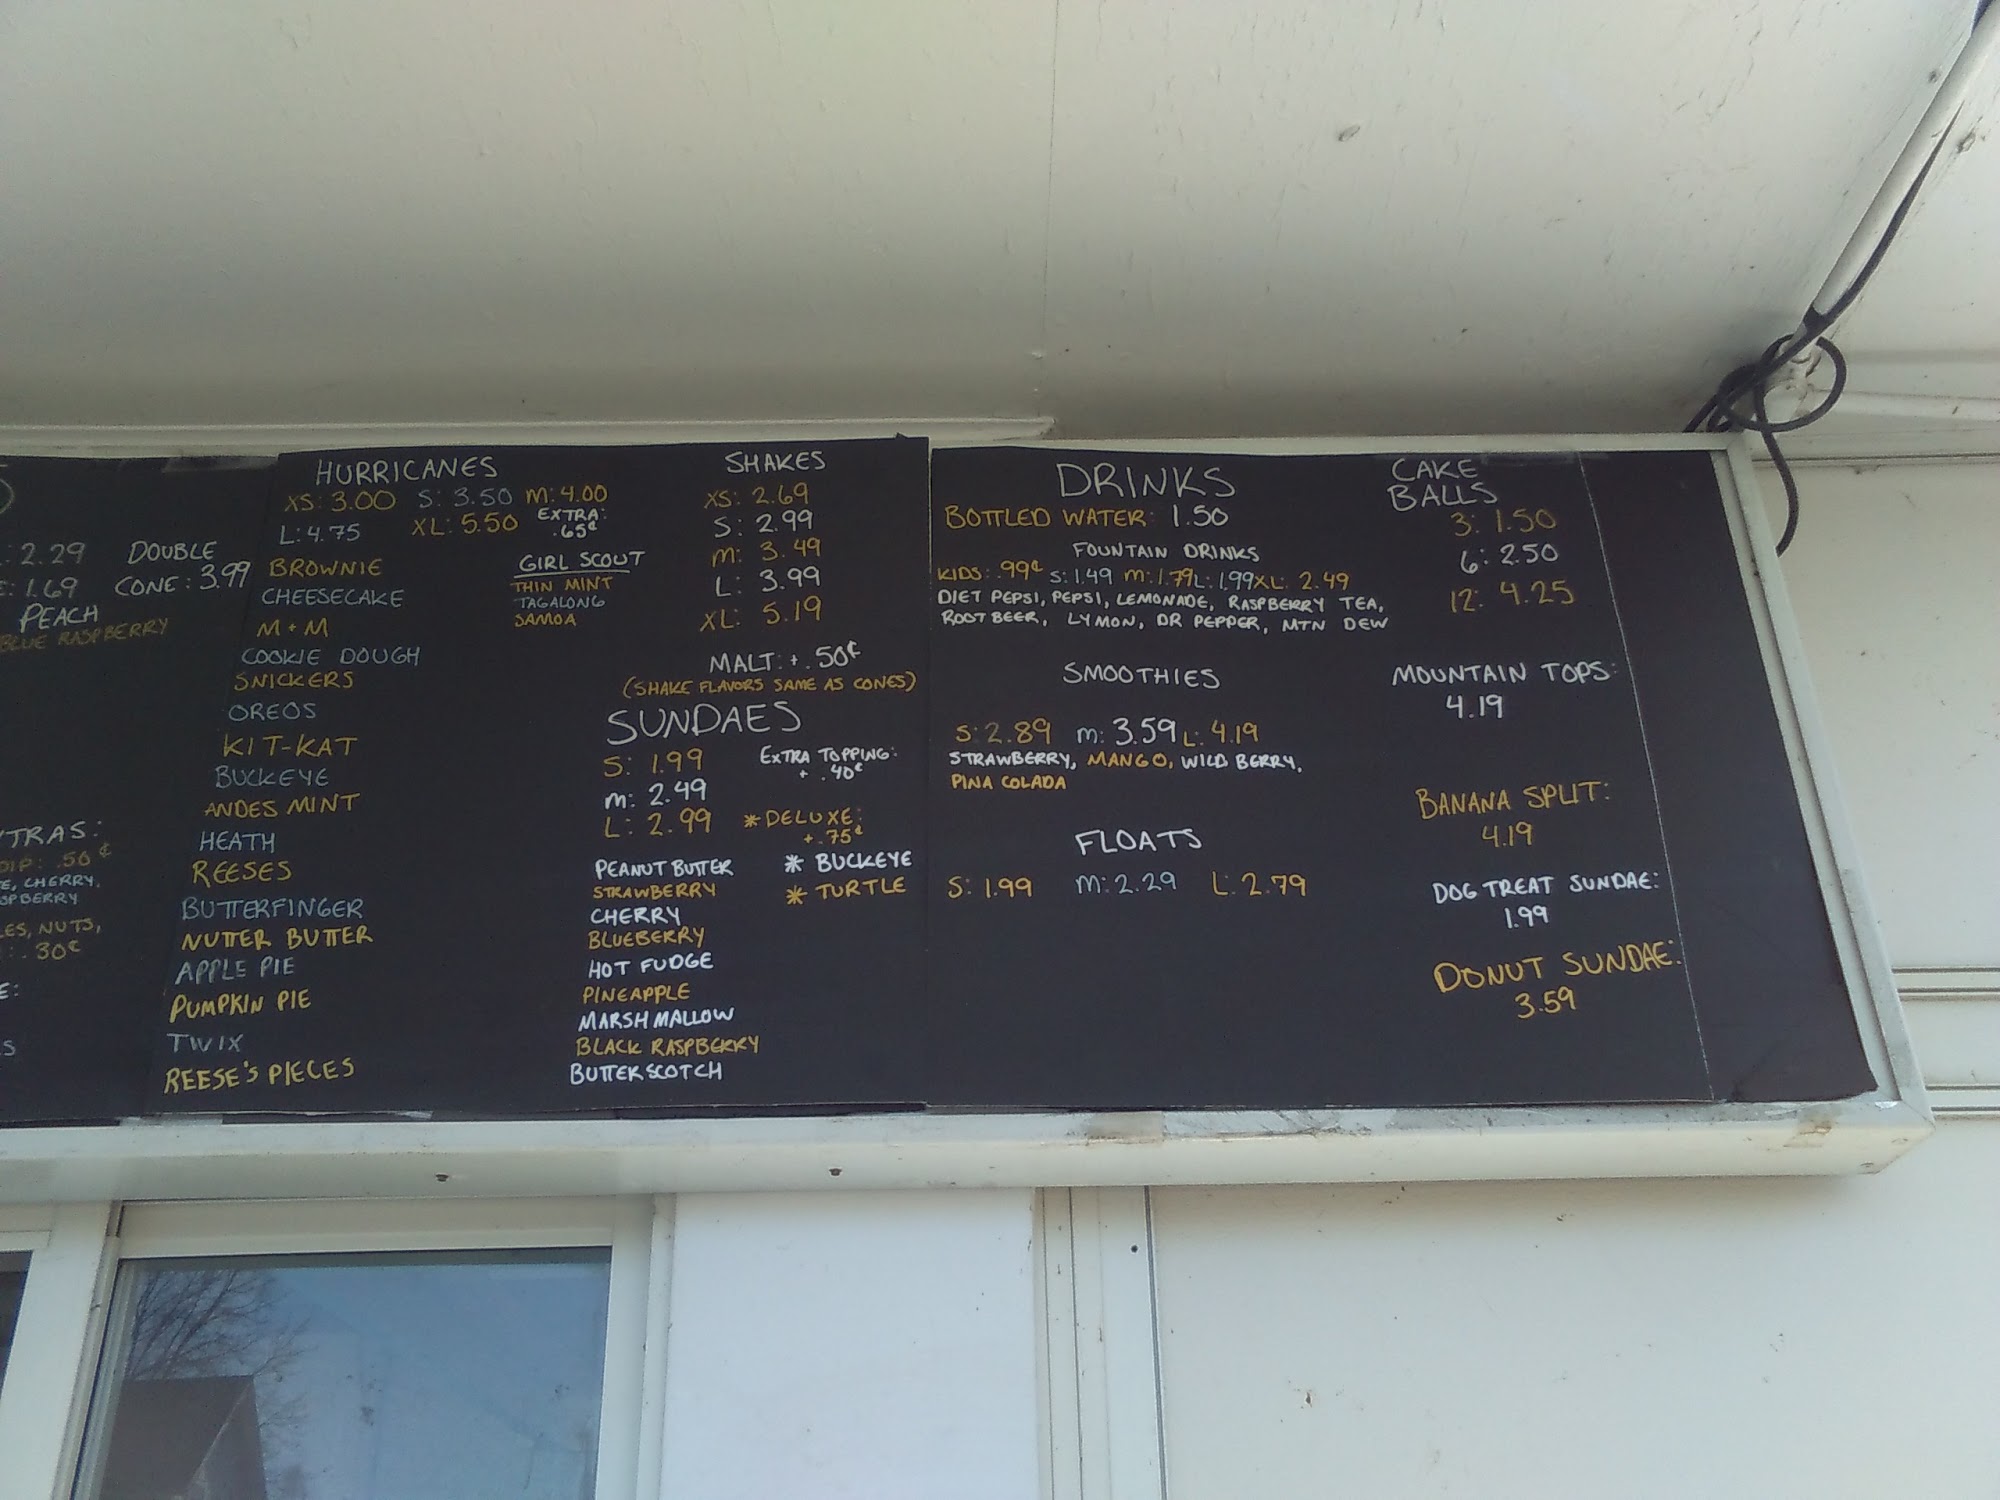 : 2.29 DOUBLE
: 1.69 CONE: 3.99
PEACH
BLUE RASPBERRY
TRAS:
DIP: .50¢
E, CHERRY,
SPBERRY
ES, NUTS,
: .30¢
E:
S
HURRICANES
XS: 3.00 S: 3.50 M: 4.00
L: 4.75 XL: 5.50 EXTRA:
.65¢
BROWNIE
CHEESECAKE
M+M
COOKIE DOUGH
SNICKERS
OREOS
KIT-KAT
BUCKEYE
ANDES MINT
HEATH
REESES
BUTTERFINGER
NUTTER BUTTER
APPLE PIE
PUMPKIN PIE
TWIX
REESE'S PIECES
GIRL SCOUT
THIN MINT
TAGALONG
SAMOA
SHAKES
XS: 2.69
S: 2.99
M: 3.49
L: 3.99
XL: 5.19
MALT: + .50¢
(SHAKE FLAVORS SAME AS CONES)
SUNDAES
S: 1.99
M: 2.49
L: 2.99
EXTRA TOPPING:
+ .40¢
* DELUXE:
+ .75¢
* BUCKEYE
* TURTLE
PEANUT BUTTER
STRAWBERRY
CHERRY
BLUEBERRY
HOT FUDGE
PINEAPPLE
MARSHMALLOW
BLACK RASPBERRY
BUTTERSCOTCH
DRINKS
BOTTLED WATER: 1.50
FOUNTAIN DRINKS
KIDS: .99¢ S: 1.49 M: 1.79 L: 1.99 XL: 2.49
DIET PEPSI, PEPSI, LEMONADE, RASPBERRY TEA,
ROOT BEER, LYMON, DR PEPPER, MTN DEW
SMOOTHIES
S: 2.89 M: 3.59 L: 4.19
STRAWBERRY, MANGO, WILD BERRY,
PINA COLADA
FLOATS
S: 1.99 M: 2.29 L: 2.79
CAKE
BALLS
3: 1.50
6: 2.50
12: 4.25
MOUNTAIN TOPS:
4.19
BANANA SPLIT:
4.19
DOG TREAT SUNDAE:
1.99
DONUT SUNDAE:
3.59